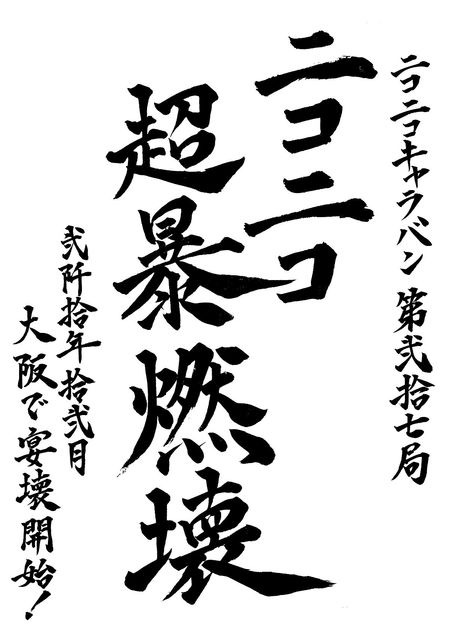 ニコニコキャラバン 第弐拾七局
ニコニコ
超暴燃壊
弐阡拾年拾弐月
大阪で宴壊開始!